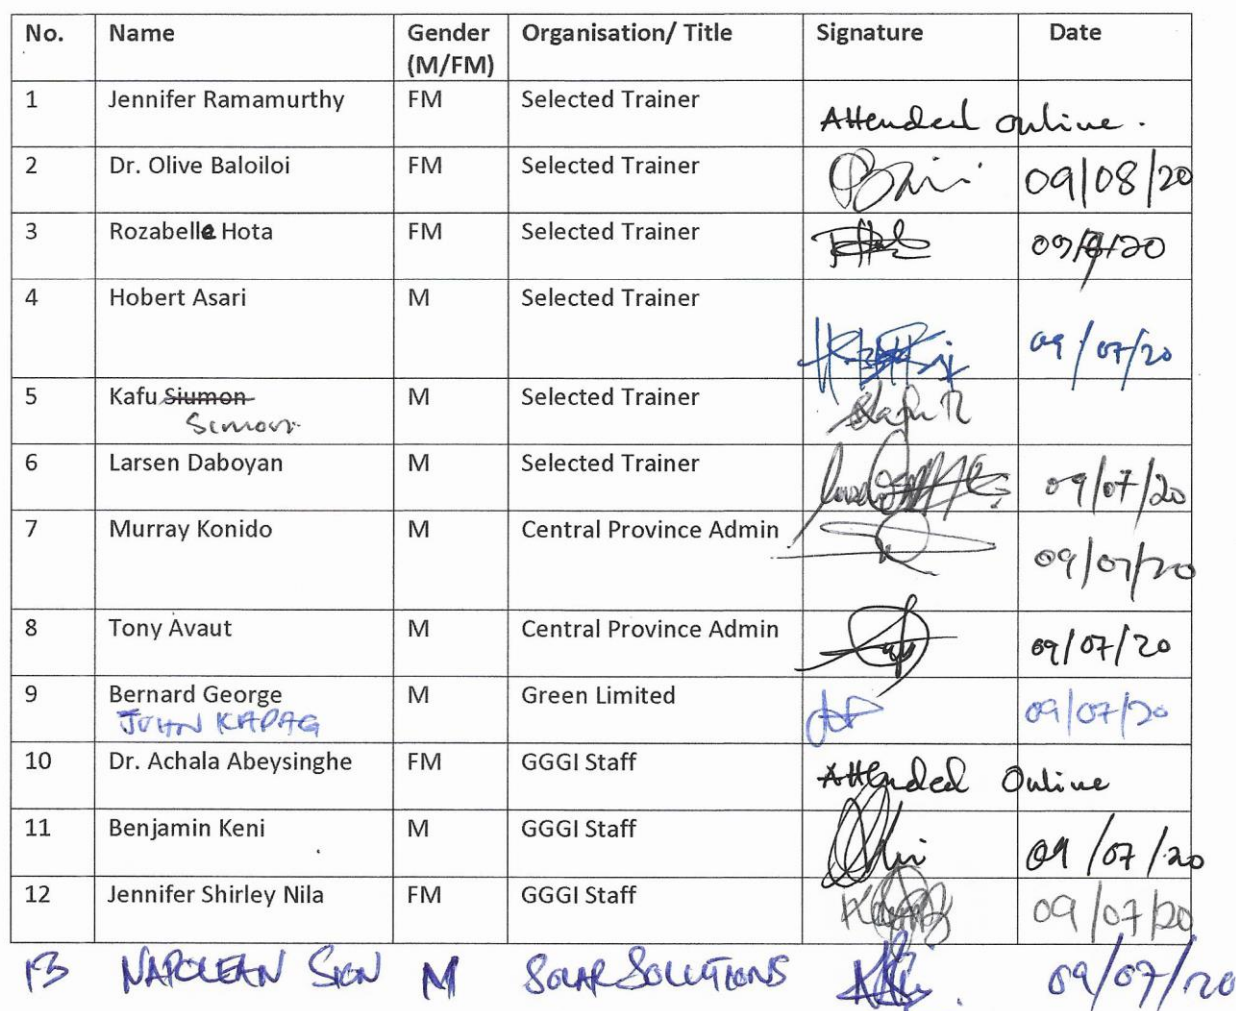 No. Name Gender (M/FM) Organisation/ Title Signature Date
1 Jennifer Ramamurthy FM Selected Trainer Attended online.
2 Dr. Olive Baloiloi FM Selected Trainer 09/08/20
3 Rozabelle Hota FM Selected Trainer
4 Hobert Asari M Selected Trainer 09/07/20
5 Kafu Siumon M Selected Trainer
Simon
6 Larsen Daboyan M Selected Trainer 09/07/20
7 Murray Konido M Central Province Admin 09/07/20
8 Tony Avaut M Central Province Admin 09/07/20
9 Bernard George M Green Limited 09/07/20
JOHN KAPAG
10 Dr. Achala Abeysinghe FM GGGI Staff Attended Online
11 Benjamin Keni M GGGI Staff 09/07/20
12 Jennifer Shirley Nila FM GGGI Staff 09/07/20
13 NAPOLEAN SION M SOLAR SOLUTIONS 09/07/20